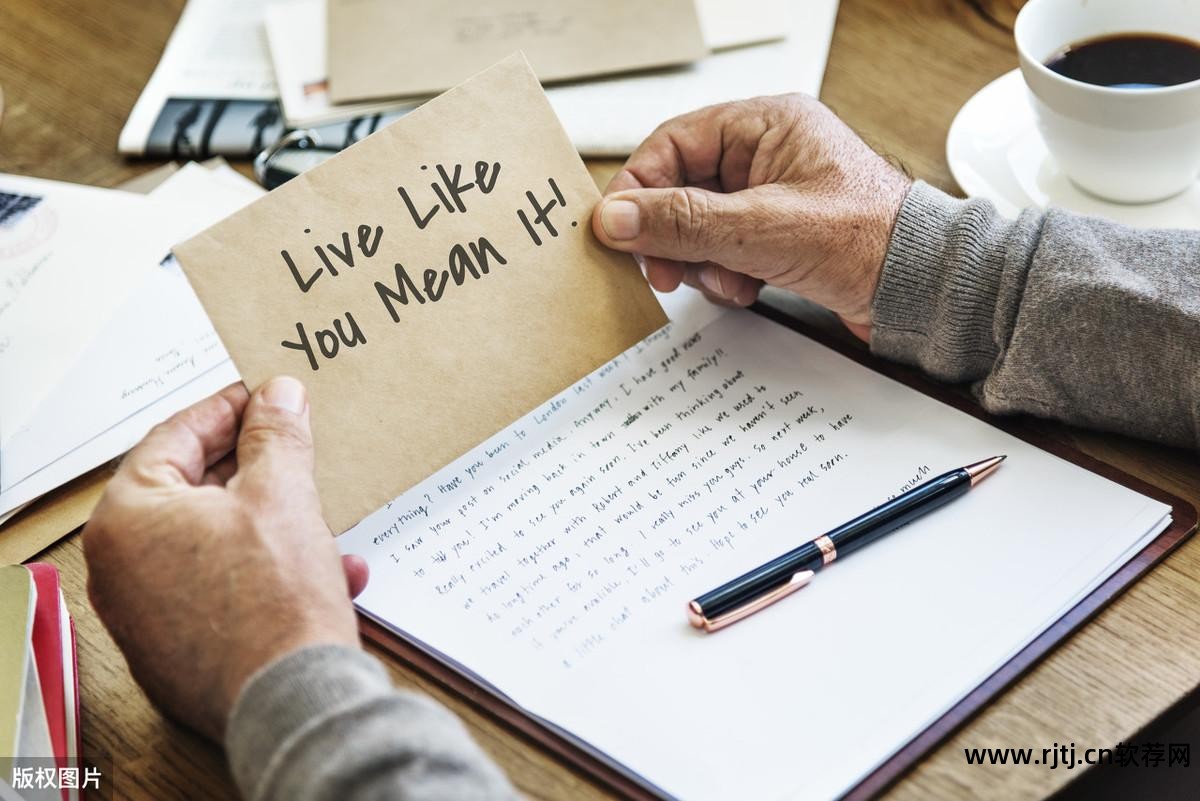 Live Like
You Mean It!
everything? Have you been to London last week? I though
I saw your post on social media. Anyway, I have good news
to you! I'm moving back in town with my family!!
Really excited to see you again soon. I've been thinking about
we travel together with Robert and Tiffany like we used to
do long time ago, that would be fun since we haven't seen
each other for so long. I really miss you guys. So next week,
if you're avalible, I'll go to see you at your house to have
a little chat about this. Hope to see you real soon.
so much
版权图片
www.rjtj.cn软荐网